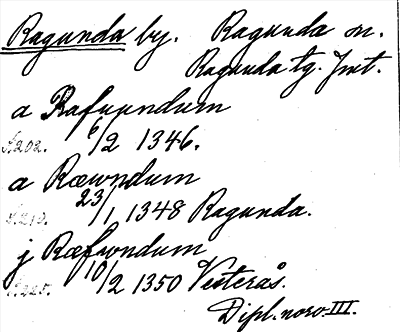 Ragunda by. Ragunda sn.
Ragunda tg. Jmt.
a Rafuundum
s.202. 6/2 1346.
a Ræwndum
s.213. 23/1 1348 Ragunda.
j Ræfwndum
s.225. 10/2 1350 Vesterås.
Dipl. norv. III.